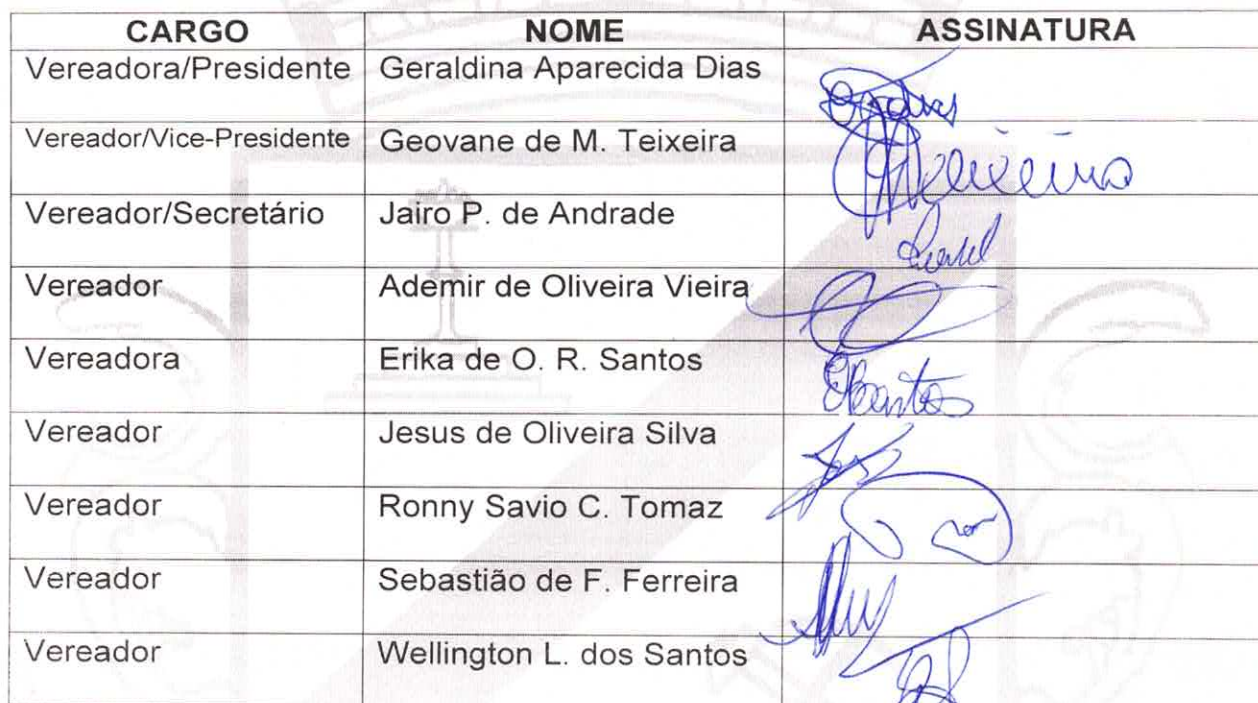 CARGO NOME ASSINATURA
Vereadora/Presidente Geraldina Aparecida Dias
Vereador/Vice-Presidente Geovane de M. Teixeira
Vereador/Secretário Jairo P. de Andrade
Vereador Ademir de Oliveira Vieira
Vereadora Erika de O. R. Santos
Vereador Jesus de Oliveira Silva
Vereador Ronny Savio C. Tomaz
Vereador Sebastião de F. Ferreira
Vereador Wellington L. dos Santos